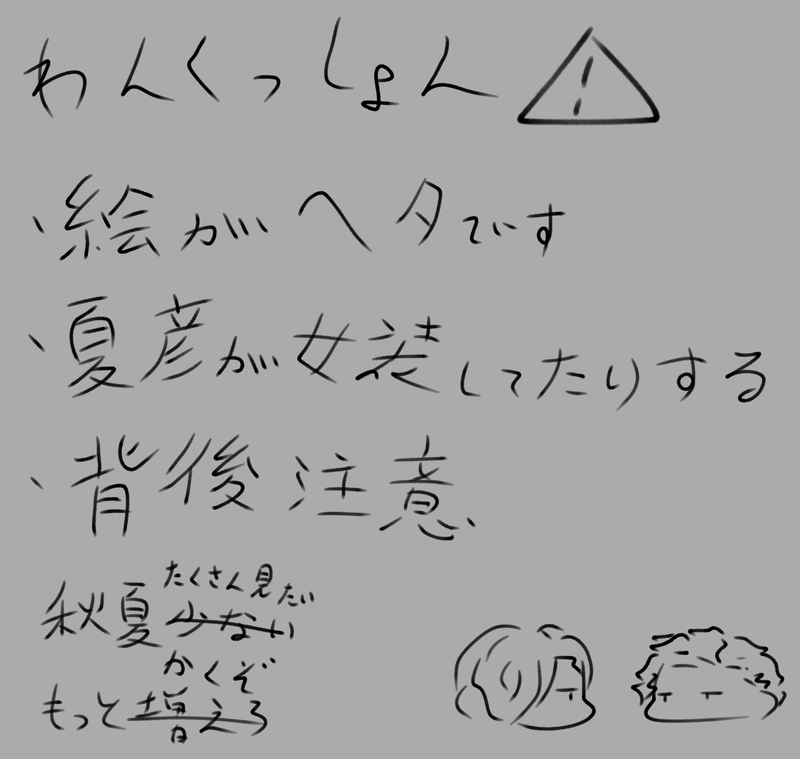 わんくっしょん
・絵がヘタです
・夏彦が女装してたりする
・背後注意
たくさん見たい
秋夏少ない
かくぞ
もっと増えろ